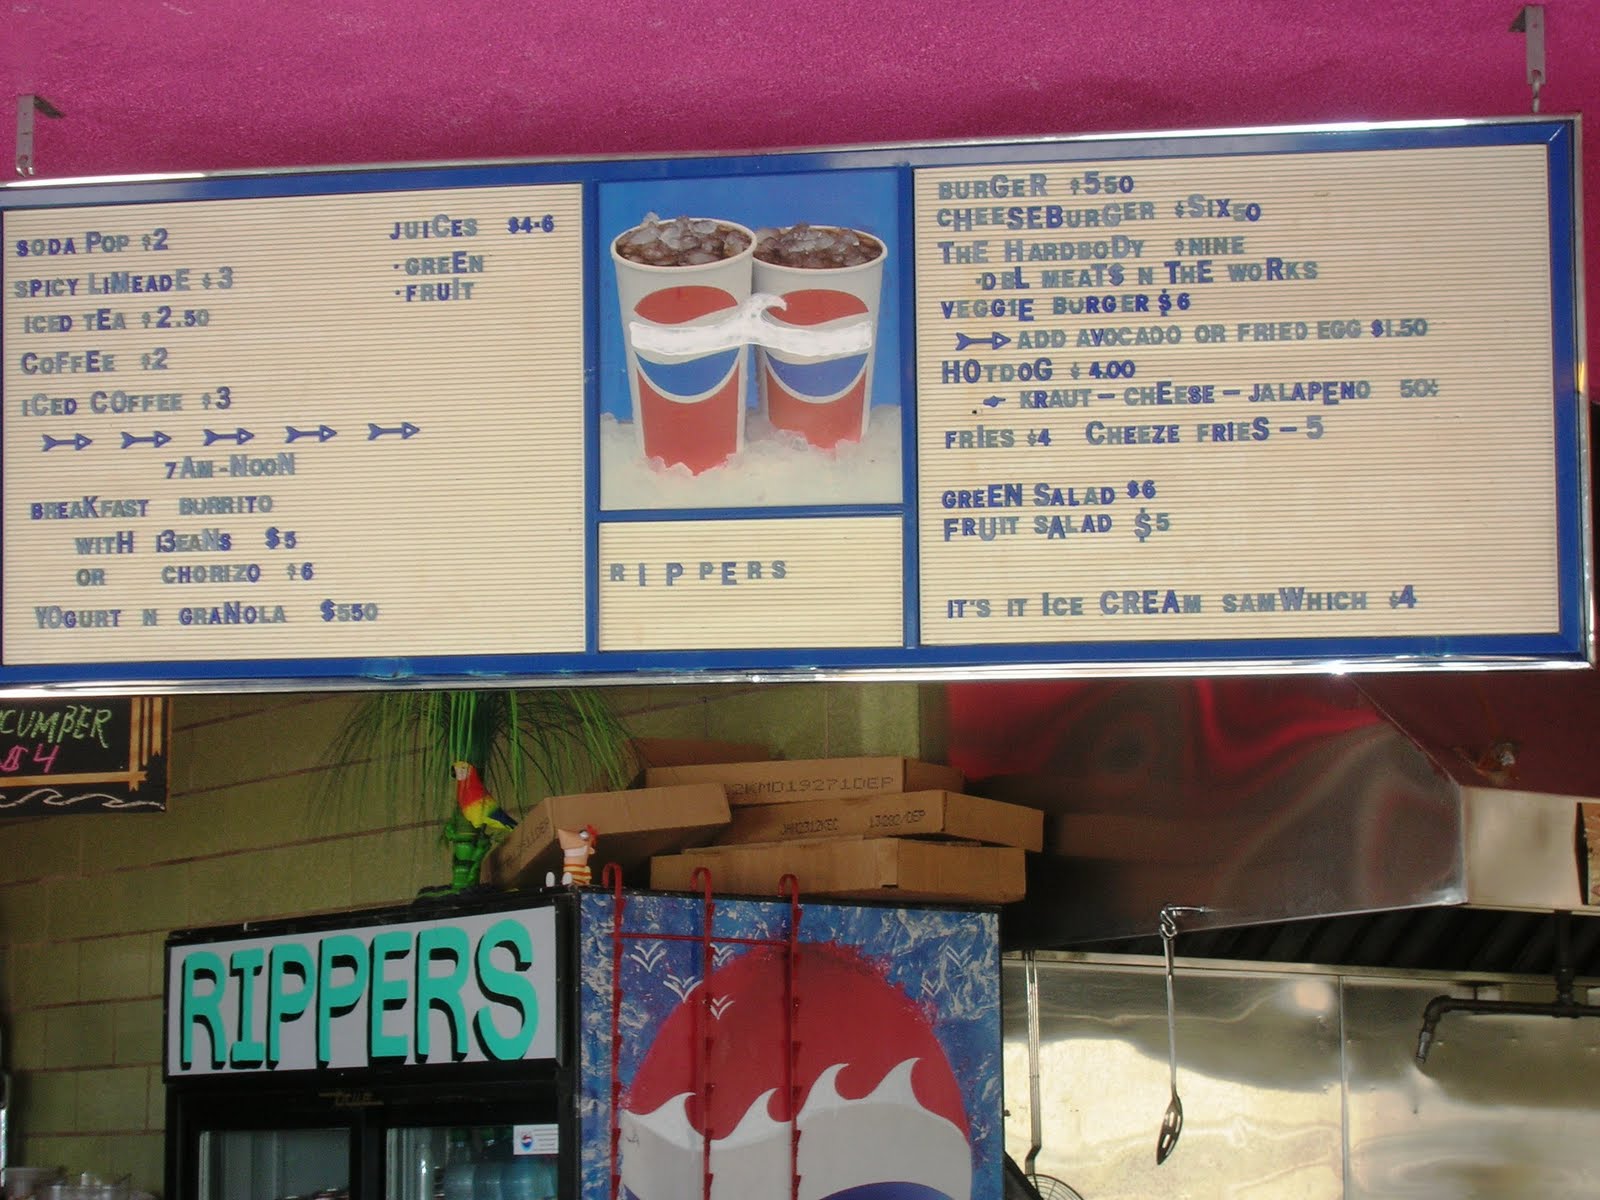 SODA POP $2
SPICY LIMEADE $3
ICED TEA $2.50
COFFEE $2
ICED COFFEE $3
7AM-NOON
BREAKFAST BURRITO
WITH BEANS $5
OR CHORIZO $6
YOGURT N GRANOLA $550
JUICES $4-6
·GREEN
·FRUIT
RIPPERS
BURGER $550
CHEESEBURGER $SIX50
THE HARDBODY $NINE
·DBL MEATS N THE WORKS
VEGGIE BURGER $6
ADD AVOCADO OR FRIED EGG $1.50
HOTDOG $4.00
KRAUT - CHEESE - JALAPENO 50¢
FRIES $4 CHEEZE FRIES - 5
GREEN SALAD $6
FRUIT SALAD $5
IT'S IT ICE CREAM SAMWHICH $4
CUMBER
$4
2KMD19271DEP
13282/DEP
RIPPERS